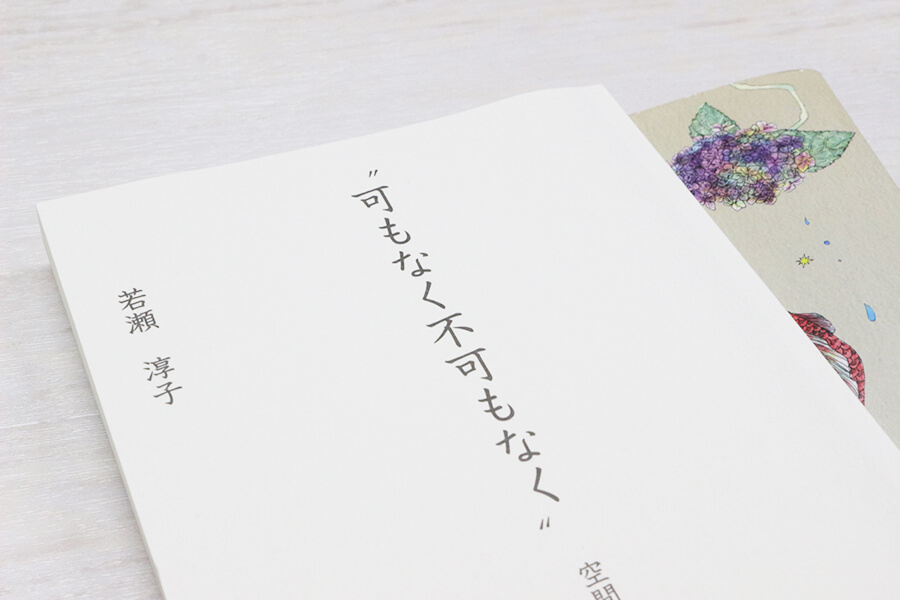 〝可もなく不可もなく〟
空間
若瀬　淳子